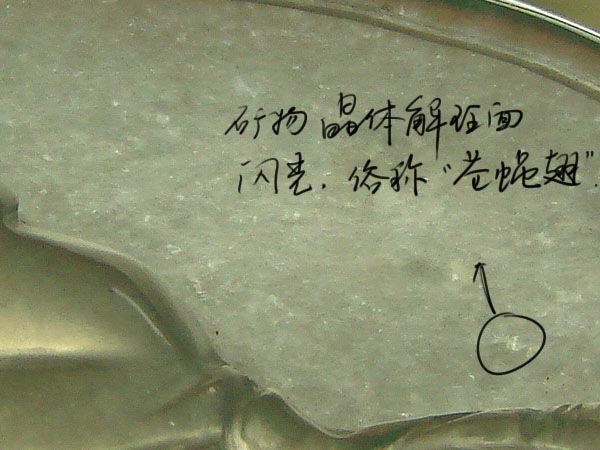 矿物晶体解理面
闪亮，俗称“苍蝇翅”.